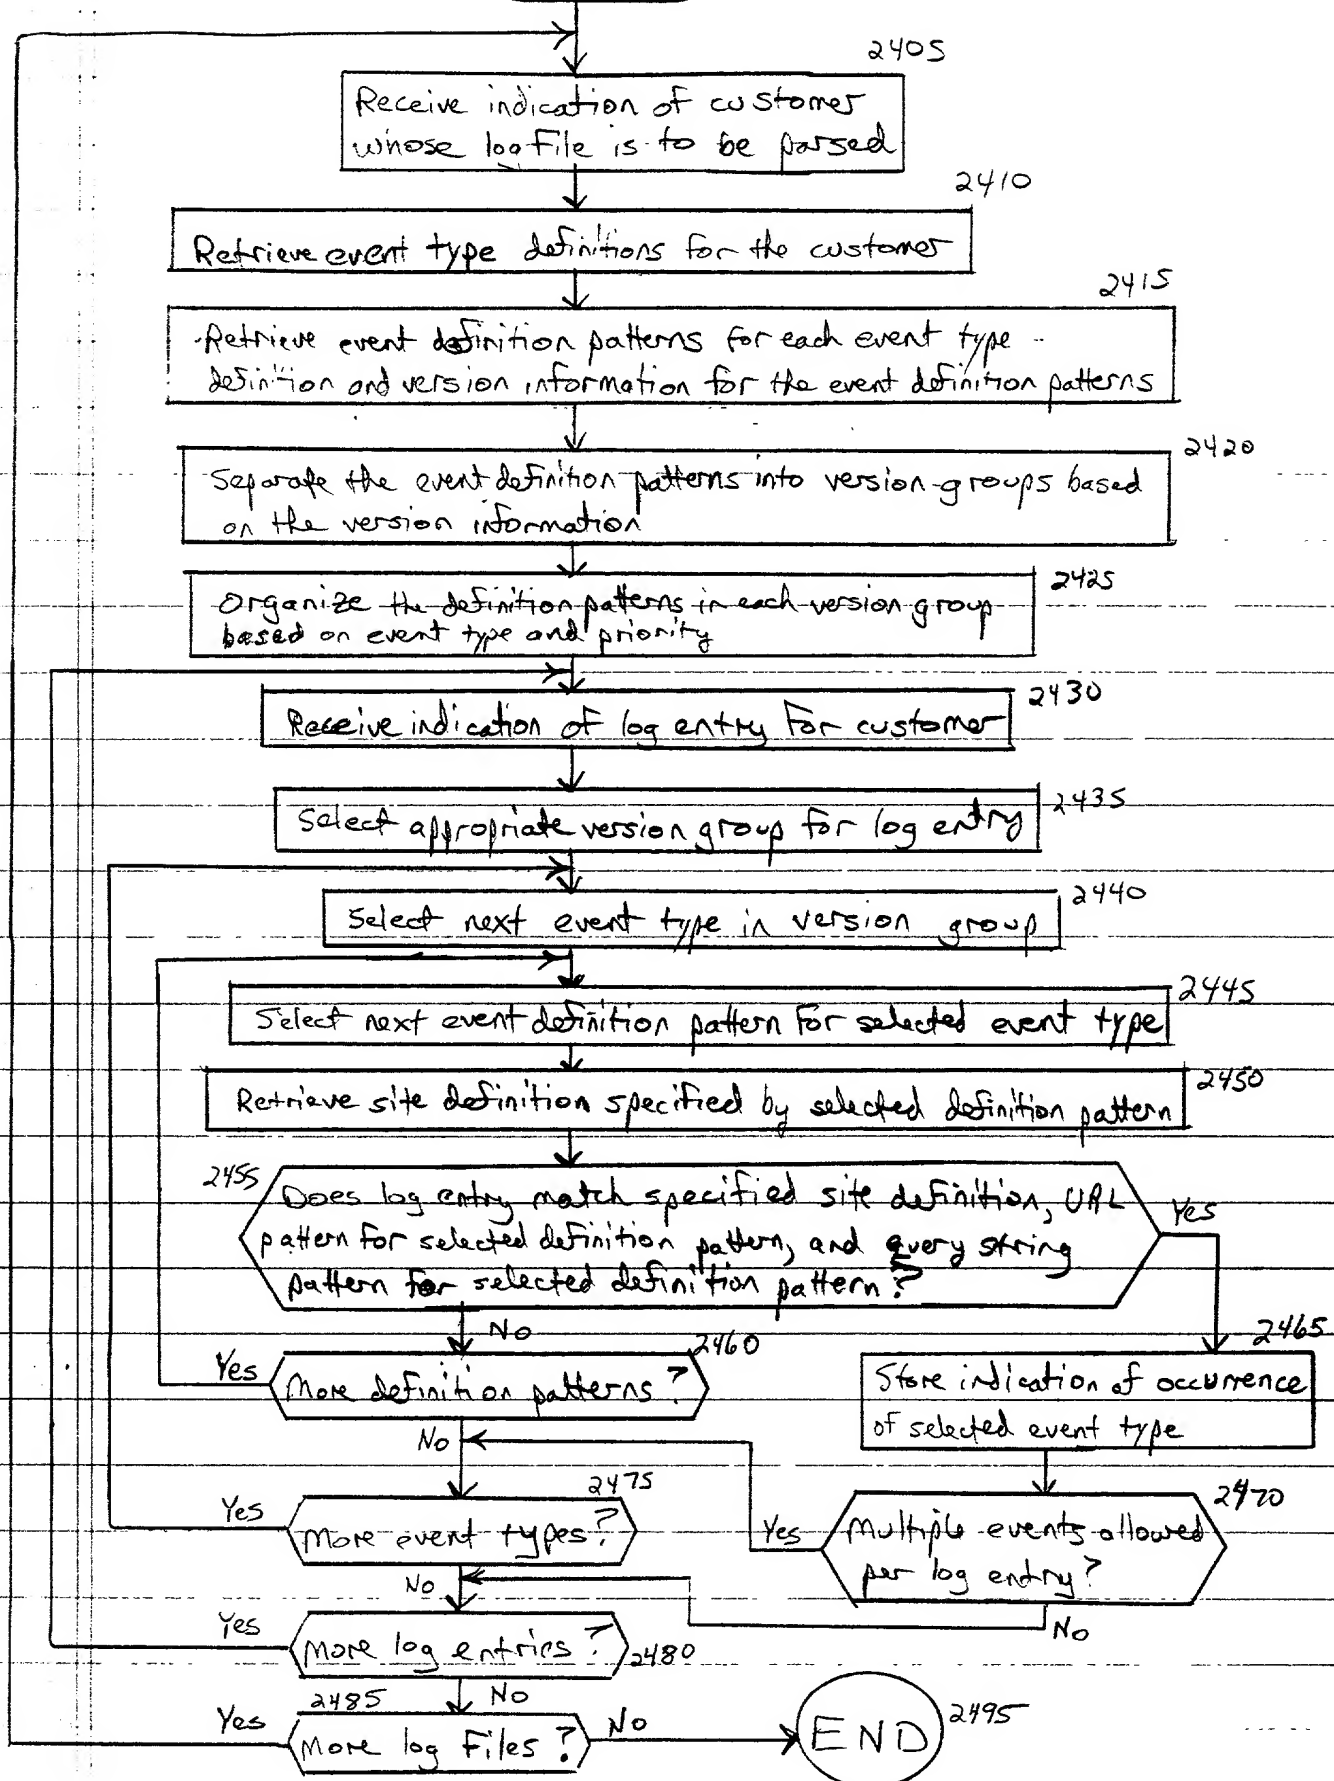 2405
Receive indication of customer
whose log file is to be parsed
2410
Retrieve event type definitions for the customer
2415
Retrieve event definition patterns for each event type
definition and version information for the event definition patterns
2420
Separate the event definition patterns into version groups based
on the version information
2425
Organize the definition patterns in each version group
based on event type and priority
2430
Receive indication of log entry for customer
2435
Select appropriate version group for log entry
2440
Select next event type in version group
2445
Select next event definition pattern for selected event type
2450
Retrieve site definition specified by selected definition pattern
2455
Does log entry match specified site definition, URL
pattern for selected definition pattern, and query string
pattern for selected definition pattern?
Yes
No
2460
More definition patterns?
Yes
No
2465
Store indication of occurrence
of selected event type
2470
Multiple events allowed
per log entry?
Yes
No
2475
More event types?
Yes
No
More log entries?
2480
Yes
No
2485
More log files?
Yes
No
END
2495